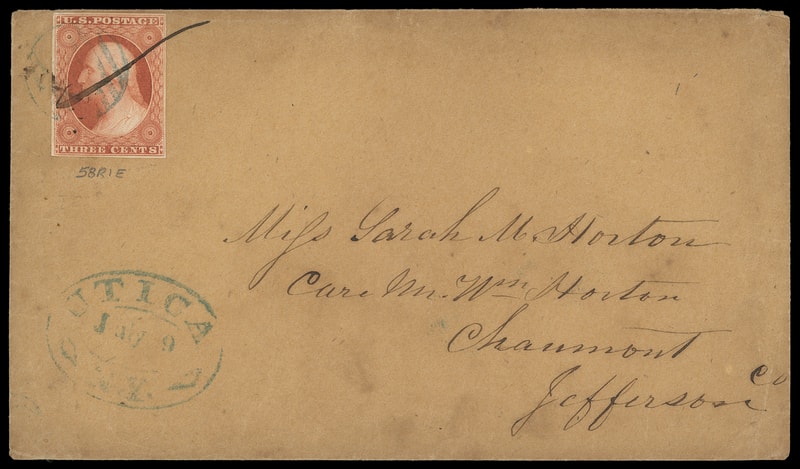 U.S. POSTAGE
THREE CENTS
58R1E
Miſs Sarah M. Horton
Care Mr. Wm Horton
Chaumont
Jefferson Co
UTICA
9
N.Y.